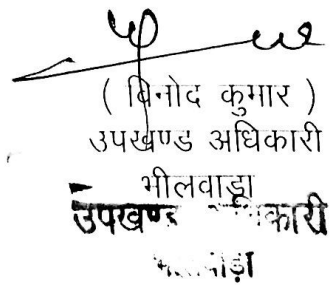 ( विनोद कुमार )
उपखण्ड अधिकारी
भीलवाड़ा
उपखण्ड अधिकारी
भीलवाड़ा